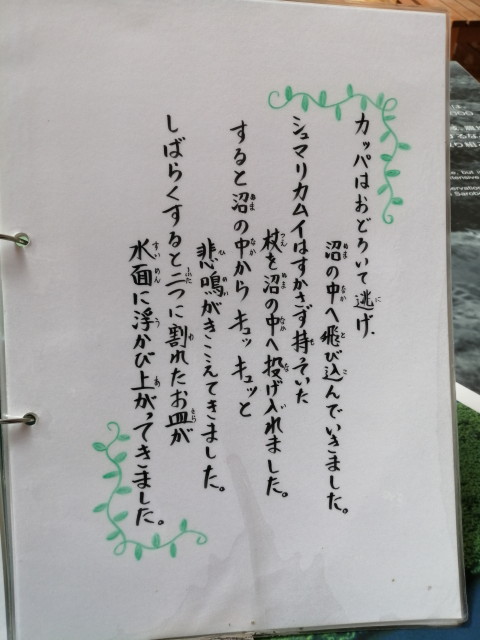 カッパはおどろいて逃げ、
沼の中へ飛び込んでいきました。
シュマリカムイはすかさず持っていた
杖を沼の中へ投げ入れました。
すると沼の中からキュッキュッと
悲鳴がきこえてきました。
しばらくすると二つに割れたお皿が
水面に浮かび上がってきました。